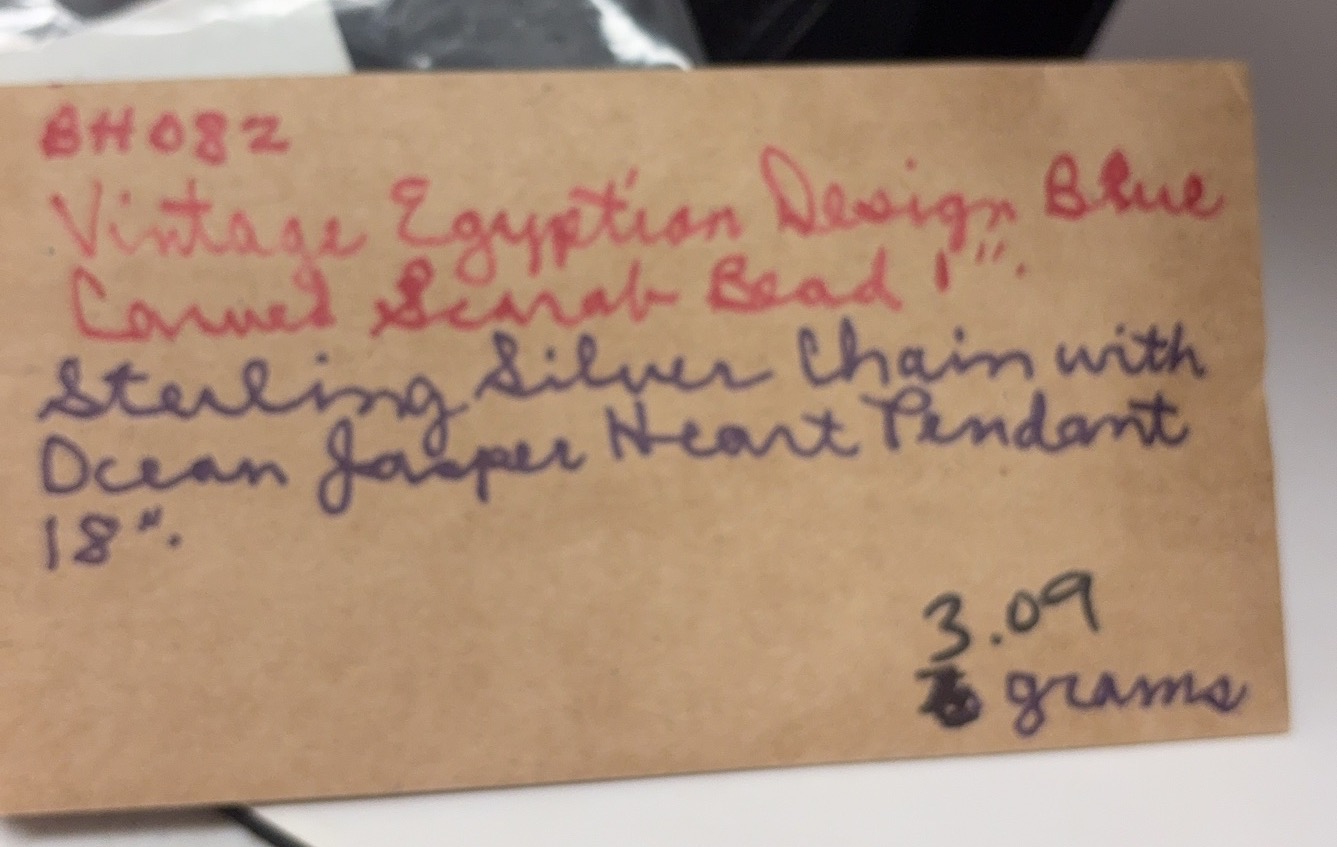 BH082
Vintage Egyptian Design Blue
Carved Scarab Bead 1".
Sterling Silver Chain with
Ocean Jasper Heart Pendant
18".
3.09
grams